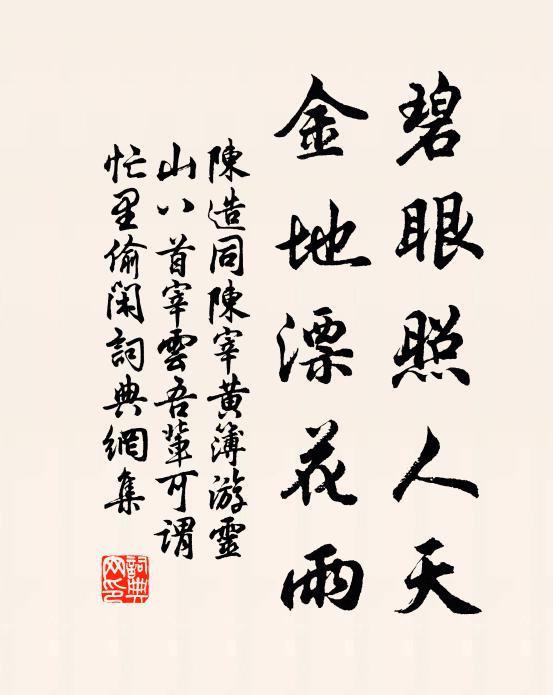 碧眼照人天
金地漂花雨
陳造同陳宰黃簿游靈
山八首宰雲吾輩可謂
忙里偷閑詞典網集
詞典
网印